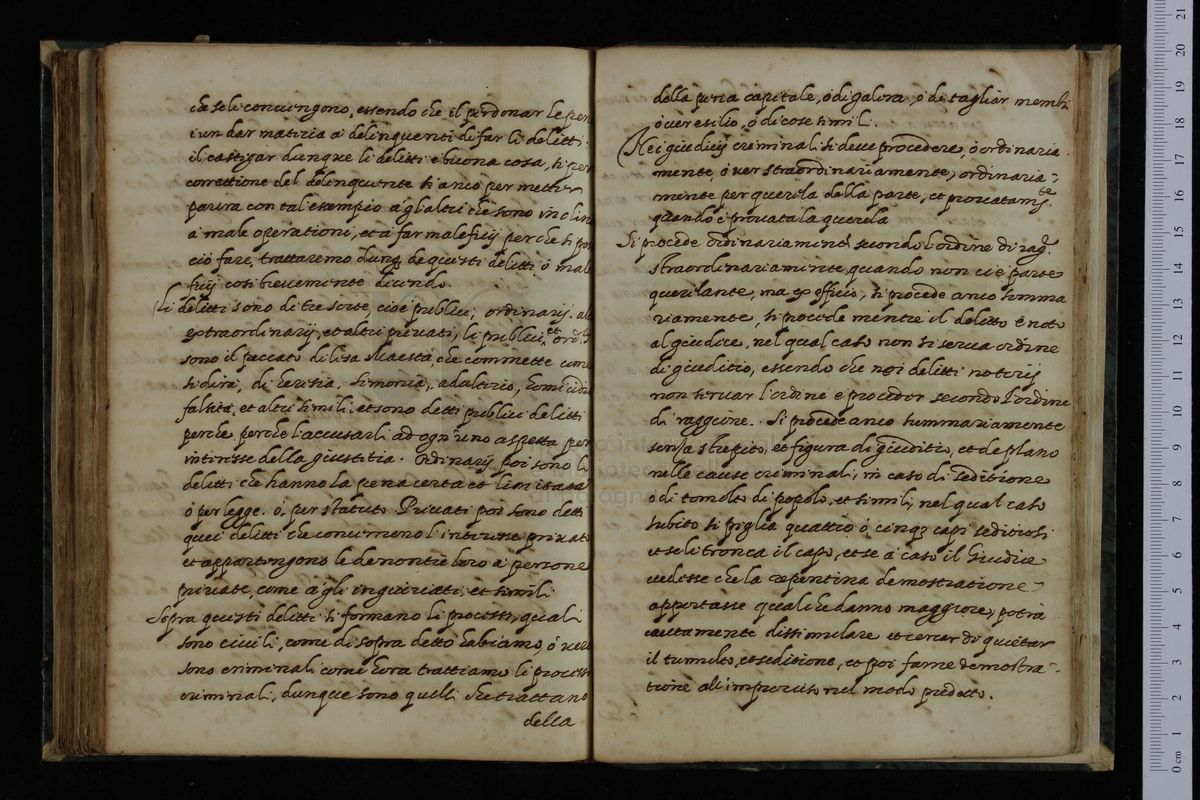 che se li convengono, essendo che il perdonar le pen
è un dar materia a i delinquenti di far li delitti:
il castigar dunque li delitti è buona cosa, si per
correttione del delinquente si anco per metter
paura con tal essempio a gl'altri che sono inclin
a male operationi, et à far maleficij perche si pos
ciò fare, trattaremo dunq. de questi delitti ò male
ficij così brevemente dicendo.
Li delitti sono di tre sorte, cioè publici, ordinarij. al
extraordinarij, et altri privati, li publici, et ord.
sono il peccato di lesa Maestà, che commette come
si dirà, di heresia, simonia, adulterio, homicidio
falsità, et altri simili, et sono detti publici delitti
perche, perche l'accusarli ad ogn'uno aspetta per
interesse della giustitia. Ordinarij poi sono li
delitti che hanno la pena certa et limitata
ò per legge. ò, per statuto Privati poi sono detti
quei delitti che concernono l'interesse privato
et appartengono le demontie loro à persone
private, come a gli ingiuriati, et simili
Sopra questi delitti si formano li processi, quali
sono civili, come di sopra detto habiamo, ò vero
sono criminali come hora trattiamo li processi
criminali, dunque sono quelli che trattano
della
della pena capitale, ò di galera, ò di tagliar membri
ò ver esilio, ò di cose simili.
Nei giudicij criminali si deve procedere, ò ordinaria
mente, ò ver straordinariamente, ordinaria-
mente per querela della parte, et provatam.te
quando è provata la querela
Si procede ordinariamente secondo l'ordine di rag.
straordinariamente quando non ci è parte
querelante, ma ex officio, si procede anco somma
riamente, si procede mentre il delitto è noto
al giudice, nel qual caso non si serva ordine
di giuditio, essendo che nei delitti notorij
non servar l'ordine è proceder secondo l'ordine
di raggione. Si procede anco summariamente
senza strepito, et figura di giuditio, et de plano
nelle cause criminali, in caso di seditione
ò di tomolto di popolo, et simili, nel qual caso
subito si piglia quattro ò cinq. capi seditiosi
et se li tronca il capo, et se à caso il Giudice
vedesse che la repentina demostratione
apportasse qualche danno maggiore, potrà
cautamente dissimulare et cercar di quietar
il tumolto, et seditione, et poi farne demostra-
tione all'improviso nel modo predetto.